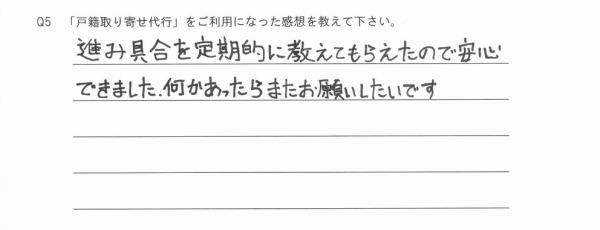 Q5 「戸籍取り寄せ代行」をご利用になった感想を教えて下さい。
進み具合を定期的に教えてもらえたので安心
できました.何かあったらまたお願いしたいです